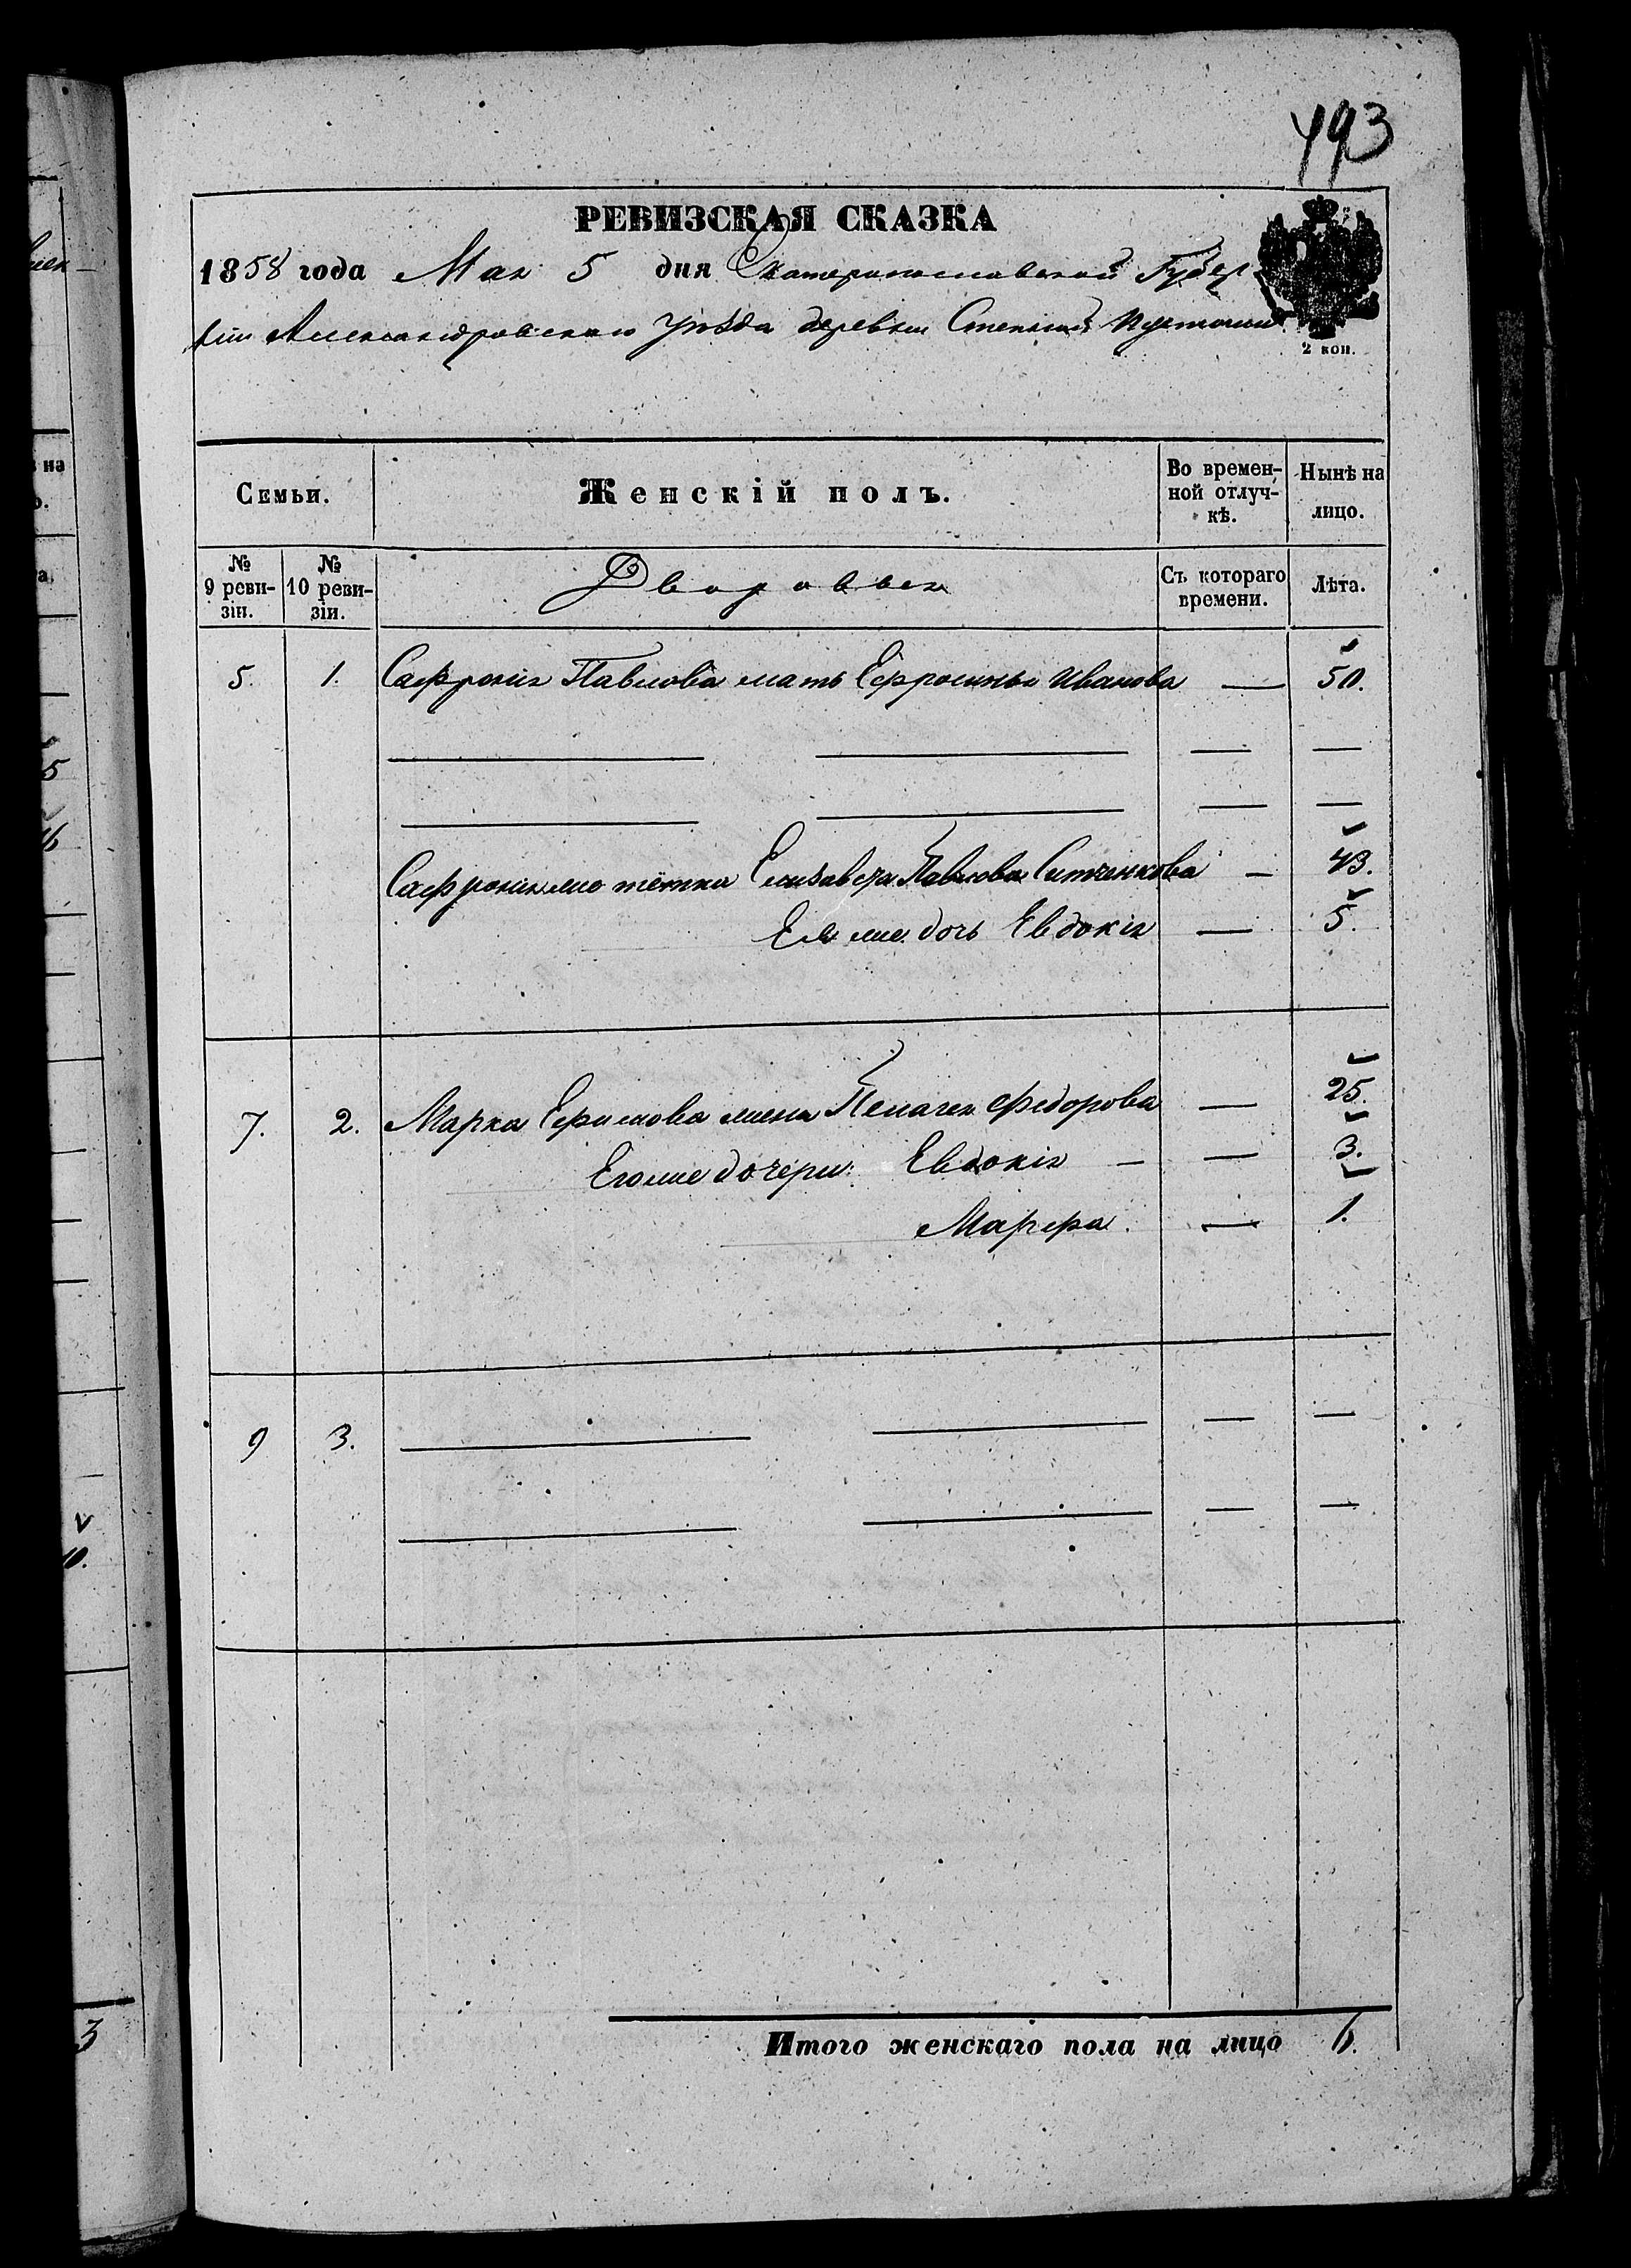 493
РЕВИЗСКАЯ СКАЗКА
1858 года Мая 5 дня Екатеринославской Губер
нiи Александровскаго Уѣзда деревни Степной
2 коп.
Семьи.
Женскiй полъ.
Во времен-
ной отлуч-
кѣ.
Нынѣ на
лицо.
№
9 реви-
зiи.
№
10 реви-
зiи.
Дворовыя
Съ котораго
времени.
Лѣта.
5. 1. Сафронiя Павлова мать Ефросинья Иванова — 50.
Сафронiя тётка Елизавета Павлова Ситченкова — 43.
Ея же дочь Евдокiя — 5.
7. 2. Марка Ефимова жена Пелагея Федорова — 25.
Его же дочери: Евдокiя — — 3.
Марфа. — 1.
9 3.
Итого женскаго пола на лицо 6.